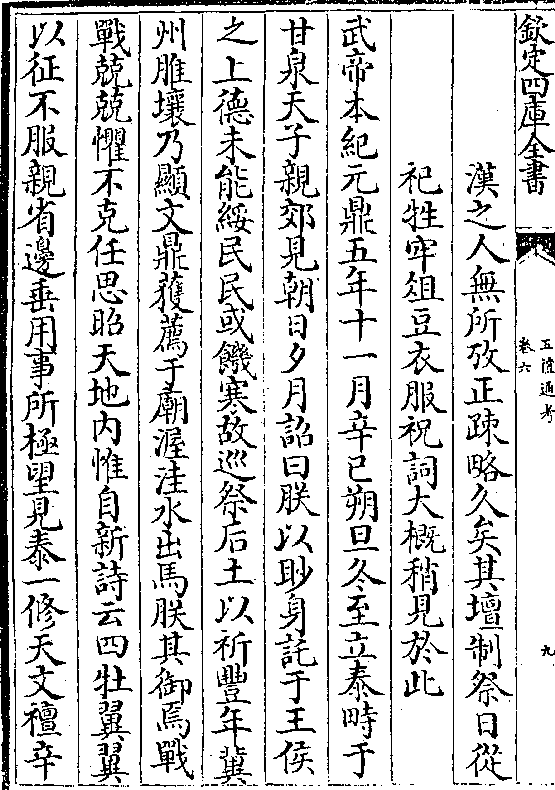 欽定四庫全書
五禮通考
卷六
九
漢之人無所攷正疎略久矣其壇制祭日從
祀牲牢俎豆衣服祝詞大概稍見於此
武帝本紀元鼎五年十一月辛巳朔旦冬至立泰畤于
甘泉天子親郊見朝日夕月詔曰朕以眇身託于王侯
之上德未能綏民民或饑寒故巡祭后土以祈豐年冀
州脽壤乃顯文鼎獲薦于廟渥洼水出馬朕其御焉戰
戰兢兢懼不克任思昭天地內惟自新詩云四牡翼翼
以征不服親省邊垂用事所極望見泰一修天文襢辛